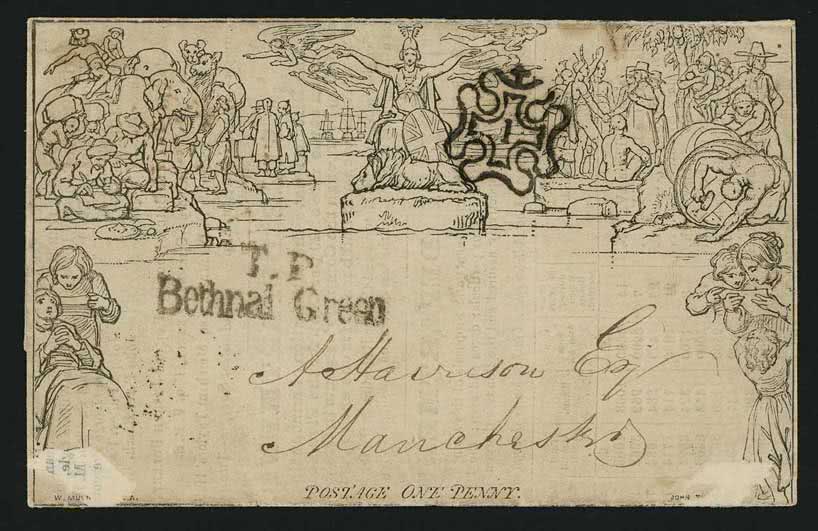 1
T.P
Bethnal Green
A Harrison Esq
Manchester
W. MU
A.
POSTAGE ONE PENNY.
JOHN T